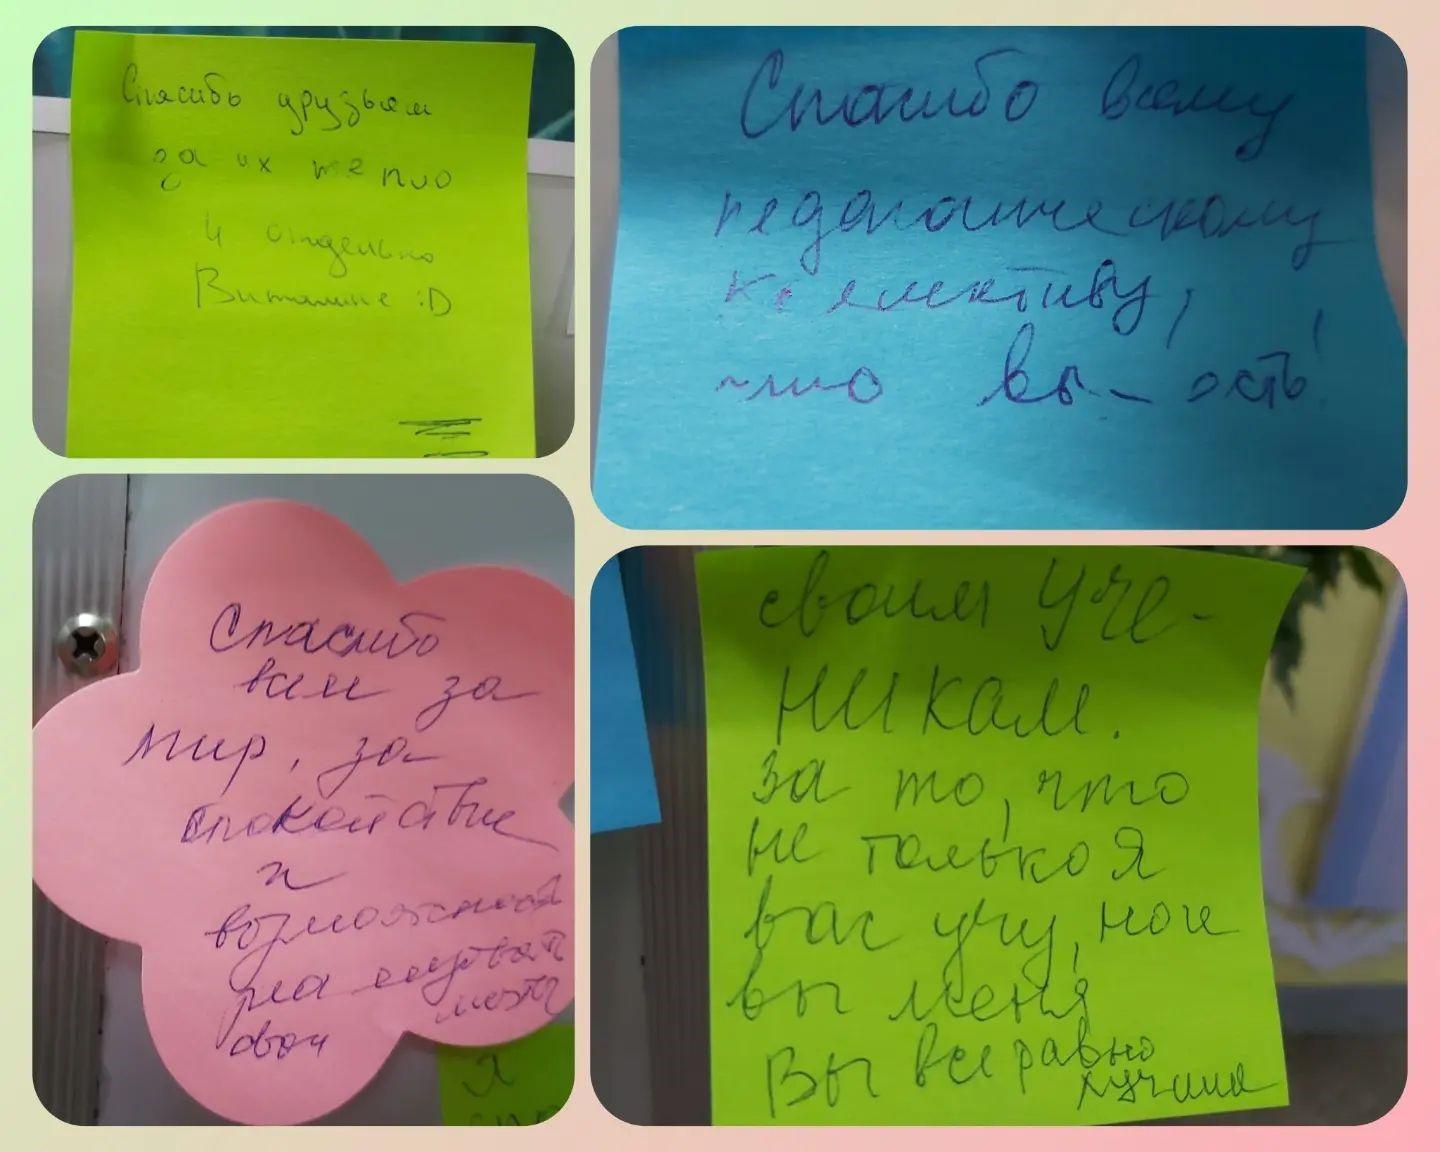 Спасибо друзьям
за их тепло
и отдельно
Виталине :D
Спасибо всему
педагогическому
коллективу,
что вы - есть!
Спасибо
вам за
мир, за
спокойствие
и
возможность
реализовать
мечты
свои
я
своим уче-
никам.
за то, что
не только я
вас учу, но и
вы меня
Вы все равно
лучшие